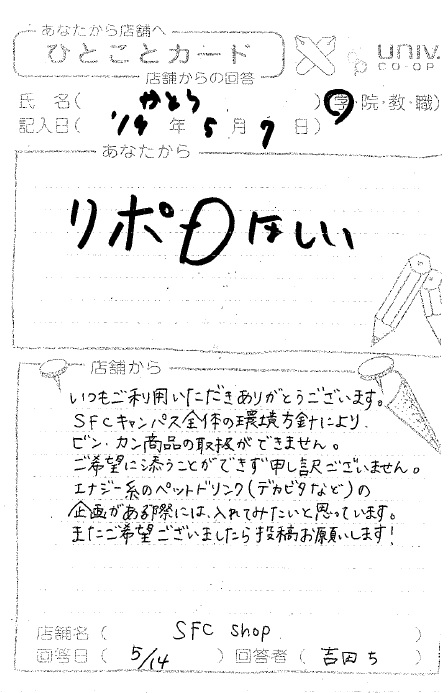 あなたから店舗へ
ひとことカード
店舗からの回答
UNIV.
CO-OP
氏 名( かとう )(学・院・教・職)
記入日( '14 年 5 月 7 日)
あなたから
リポDほしい
店舗から
いつもご利用いただきありがとうございます。
SFCキャンパス全体の環境方針により、
ビン・カン商品の取扱ができません。
ご希望に添うことができず申し訳ございません。
エナジー系のペットドリンク(デカビタなど)の
企画がある際には、入れてみたいと思っています。
またご希望ございましたら投稿お願いします!
店舗名( SFC shop )
回答日( 5/14 ) 回答者( 吉田ち )